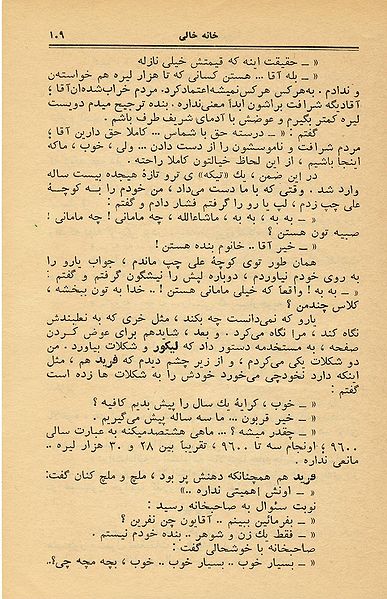 خانه خالی
۱۰۹
« ــ حقیقت اینه که قیمتش خیلی نازله
« ــ بله آقا ... هستن کسانی که تا هزار لیره هم خواستن
و ندادم . به‌هرکس هرکس‌نمیشه‌اعتمادکرد. مردم خراب‌شده‌ان‌آقا؛
آقادیگه شرافت براشون ابداً معنی‌نداره . بنده ترجیح میدم دویست
لیره کمتر بگیرم و عوضش با آدمای شریف طرف باشم .
گفتم : « ــ درسته حق با شماس ... کاملا حق دارین آقا ؛
مردم شرافت و ناموسشون را از دست دادن ... ولی ، خوب ، ماکه
اینجا باشیم ، از این لحاظ خیالتون کاملا راحته .
در این ضمن ، یك «تیکه» ی ترو تازهٔ هیجده بیست ساله
وارد شد . وقتی که با ما دست می‌داد ، من خودم را بـه کوچهٔ
علی چپ زدم ، لپ یا رو را گرفتم فشار دادم و گفتم :
« ــ به به ، به به ، ماشاءالله ، چه مامانی ! چه مامانی !
صبیه تون هستن ؟
« ــ خیر آقا .. خانوم بنده هستن !
همان طور توی کوچهٔ علی چپ ماندم ، جواب یارو را
به روی خودم نیاوردم ، دوباره لپش را نیشگون گرفتم و گفتم :
« ــ به به ! واقعاً که خیلی مامانی هستن ! .. خدا به تون ببخشه ،
کلاس چندمن ؟
یارو که نمی‌دانست چه بکند ، مثل خری که به نعلبندش
نگاه کند ، مرا نگاه می‌کرد . و بعد ، شایدهم برای عوض کـردن
صفحه ، به مستخدمه دستور داد که لیکور و شکلات بیاورد . من
دو شکلات یکی می‌کردم ، و از زیر چشم دیدم که فرید هم ، مثل
اینکه دارد نخودچی می‌خورد خودش را به شکلات ها زده است
گفتم :
« ــ خوب ، کرایهٔ یك سال را پیش بدیم کافیه ؟
« ــ خیر قربون ... ما سه ساله پیش می‌گیریم .
« ــ چقدر میشه ؟ ... ماهی هشتصدمیکنه به عبارت سالی
۹۶۰۰ ؛ اونجام سه تا ۹۶۰۰ ، تقریباً بین ۲۸ و ۳۰ هزار لیره ..
مانعی نداره .
فرید هم همچنانکه دهنش پر بود ، ملچ و ملچ کنان گفت:
« ــ اونش اهمیتی نداره ..»
نوبت سئوال به صاحبخانه رسید :
« ــ بفرمائین ببینم .. آقابون چن نفرین ؟
« ــ فقط یك زن و شوهر .. بنده خودم نیستم .
صاحبخانه با خوشحالی گفت :
« ــ بسیار خوب .. بسیار خوب .. خوب ، بچه مچه چی؟..